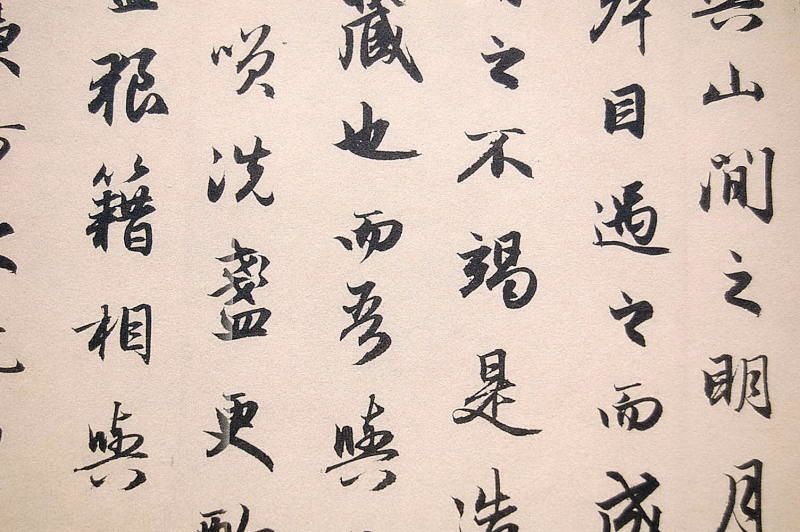 與山間之明月
目遇之而成
之不竭是造
藏也而吾與
咲洗盞更酌
狼籍相與